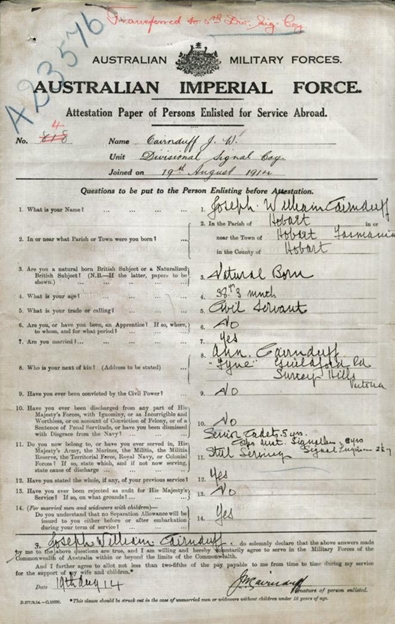 Transferred to 5th Div. Sig. Coy
A23576
AUSTRALIAN MILITARY FORCES.
AUSTRALIAN IMPERIAL FORCE.
Attestation Paper of Persons Enlisted for Service Abroad.
No. 4 Name Cairnduff J. W.
Unit Divisional Signal Coy.
Joined on 19th August 1914
Questions to be put to the Person Enlisting before Attestation.
1. What is your Name? 1. Joseph William Cairnduff
2. In or near what Parish or Town were you born? 2. In the Parish of Hobart in or
near the Town of Hobart Tasmania
in the County of Hobart
3. Are you a natural born British Subject or a Naturalized
British Subject? (N.B.—If the latter, papers to be
shown) 3. Natural Born
4. What is your age? 4. 3 mnth
5. What is your trade or calling? 5. Civil Servant
6. Are you, or have you been, an Apprentice? If so, where,
to whom, and for what period? 6. No
7. Are you married? 7. Yes
8. Who is your next of kin? (Address to be stated) 8. Ann Cairnduff
"Tyne" Guildford Rd
Surrey Hills
Victoria
9. Have you ever been convicted by the Civil Power? 9. No
10. Have you ever been discharged from any part of His
Majesty's Forces, with Ignominy, or as Incorrigible and
Worthless, or on account of Conviction of Felony, or of a
Sentence of Penal Servitude, or have you been dismissed
with Disgrace from the Navy? 10. No
11. Do you now belong to, or have you ever served in, His
Majesty's Army, the Marines, the Militia, the Militia
Reserve, the Territorial Force, Royal Navy, or Colonial
Forces? If so, state which, and if not now serving,
state cause of discharge 11. Senior Cadets
Still Serving
12. Have you stated the whole, if any, of your previous service? 12. Yes
13. Have you ever been rejected as unfit for His Majesty's
Service? If so, on what grounds? 13. No
14. (For married men and widowers with children)—
Do you understand that no Separation Allowance will be
issued to you either before or after embarkation
during your term of service? 14. Yes
I, Joseph William Cairnduff do solemnly declare that the above answers made
by me to the above questions are true, and I am willing and hereby voluntarily agree to serve in the Military Forces of the
Commonwealth of Australia within or beyond the limits of the Commonwealth.
And I further agree to allot not less than two-fifths of the pay payable to me from time to time during my service
for the support of my wife and children.
Date 19th Aug 14 J W Cairnduff
Signature of person enlisted.
*This clause should be struck out in the case of unmarried men or widowers without children under 18 years of age.